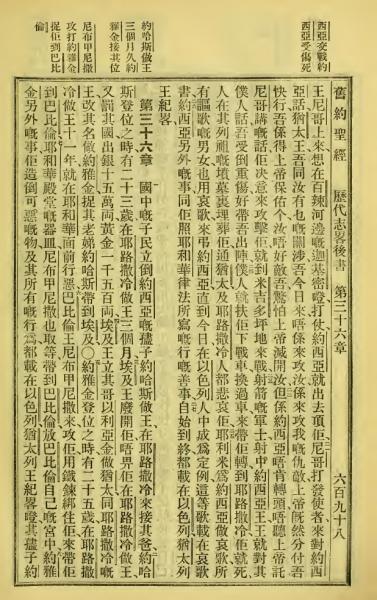 舊約聖經 歷代志畧後書 第三十六章 六百九十八
西亞交戰約
西亞受傷死
約哈斯做王
三個月久約
雅金接其位
尼布甲尼撒
攻打約雅金
捉佢到巴比
倫
王尼哥上來想在百辣河邊嘅迦基密噔打仗約西亞就出去頂佢尼哥打發使者來對約西
亞話猶太王吾同汝有乜嘅關涉吾今日來唔係來攻汝係來攻我嘅仇敵上帝既然分付吾
快行吾係得上帝保佑个汝唔好敵吾驚怕上帝滅開汝但係約西亞唔肯轉頭唔聽上帝託
尼哥講嘅話佢决意來攻擊佢就到米吉多坪地來戰射箭嘅軍士射中約西亞王王就對其
僕人話吾受倒重傷好帶吾出陣僕人就扶佢下戰車換過車來帶佢轉到耶路撒冷佢就死
人在其列祖嘅墳墓裏埋葬佢通猶太及耶路撒冷人都悲哀佢耶利米爲約西亞做哀歌所
有謳歌嘅男女也用哀歌來弔約西亞直到今日在以色列人中成爲定例這等歌載在哀歌
書約西亞另外嘅事同佢照耶和華律法所寫嘅行嘅善事自始到終都載在以色列猶太列
王紀畧
第三十六章 國中嘅子民立倒約西亞嘅儘子約哈斯做王在耶路撒冷來接其爸約哈
斯登位之時有二十三歲在耶路撒冷做王三個月埃及王廢開佢唔畀佢在耶路撒冷做王
又罰其國出銀十五萬両黃金一千五百両埃及王立其哥以利亞金做猶太同耶路撒冷嘅
王改其名做約雅金捉其老娣約哈斯帶到埃及〇約雅金登位之時有二十五歲在耶路撒
冷做王十一年就在耶和華面前行惡巴比倫王尼布甲尼撒來攻佢用鐵鍊綁住佢來帶佢
到巴比倫耶和華殿堂嘅器皿尼布甲尼撒也取等帶到巴比倫放巴比倫自己嘅宮中約雅
金另外嘅事佢造倒可惡嘅物及其所有嘅行爲都載在以色列猶太列王紀畧噔其儘子約